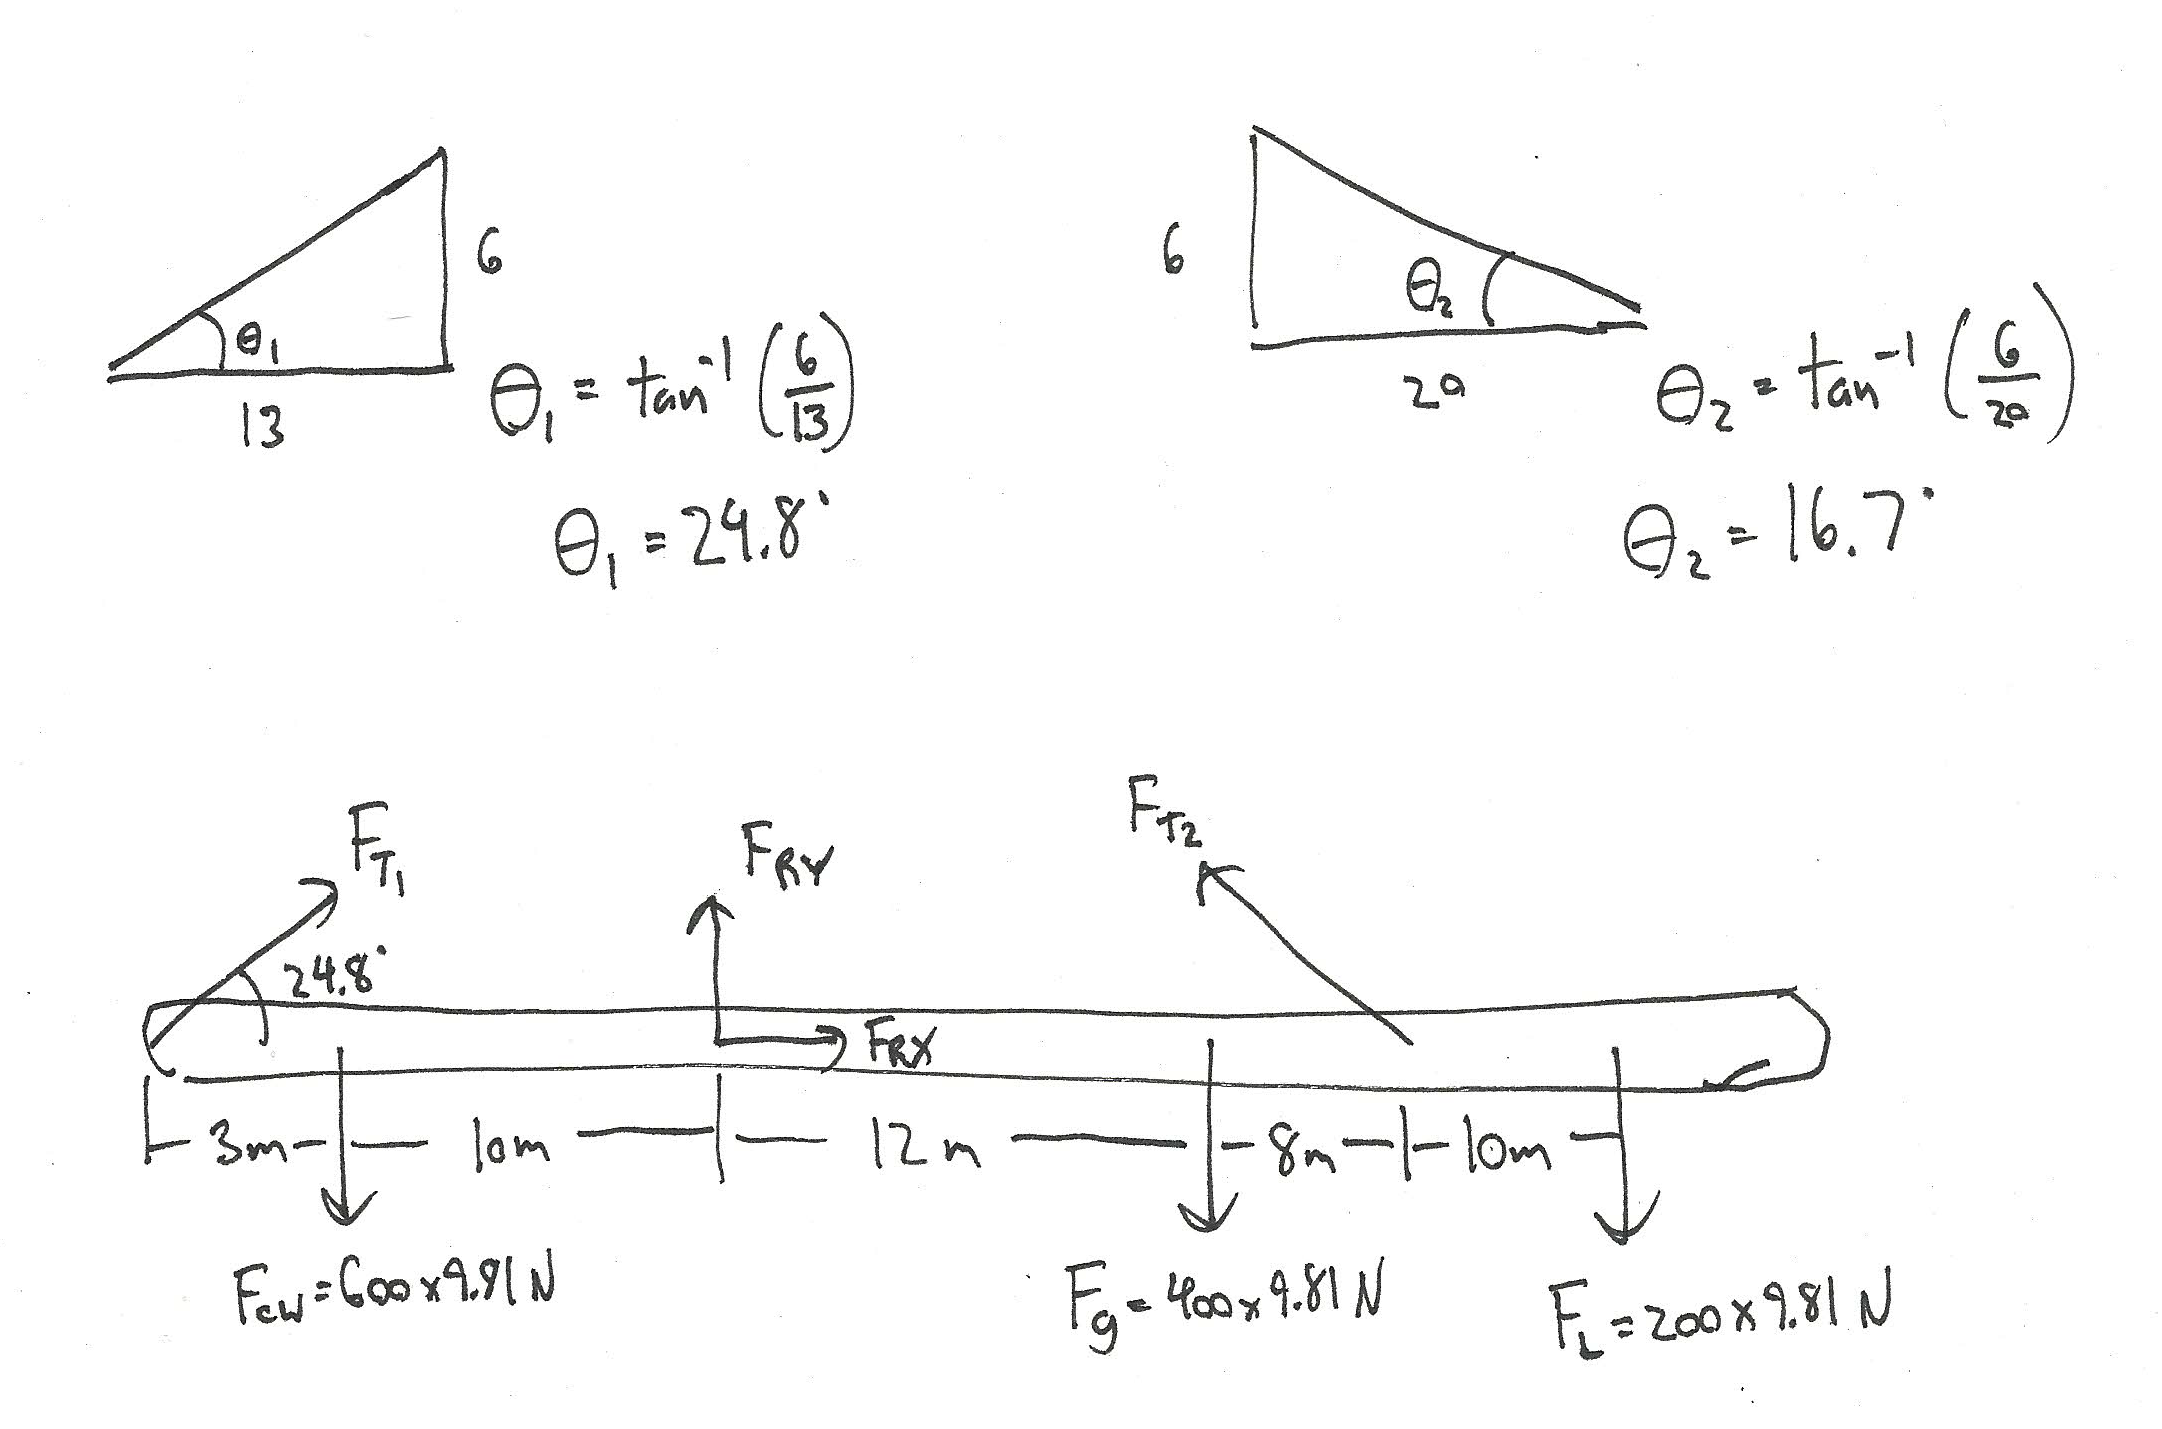 6
θ₁
13
θ₁ = tan⁻¹ (6/13)
θ₁ = 24.8°
6
θ₂
20
θ₂ = tan⁻¹ (6/20)
θ₂ = 16.7°
F_T₁
F_RY
F_T2
24.8°
F_RX
3m 10m 12m 8m 10m
F_CW = 600 x 9.81 N
F_g = 400 x 9.81 N
F_L = 200 x 9.81 N